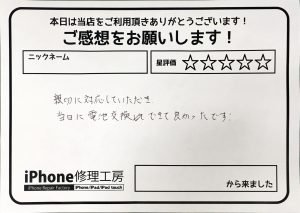 本日は当店をご利用頂きありがとうございます！
ご感想をお願いします！
ニックネーム
星評価 ☆☆☆☆☆
親切に対応していただき
当日に電池交換が できて良かったです。
iPhone修理工房
iPhone Repair Factory iPhone/iPad/iPod touch
から来ました